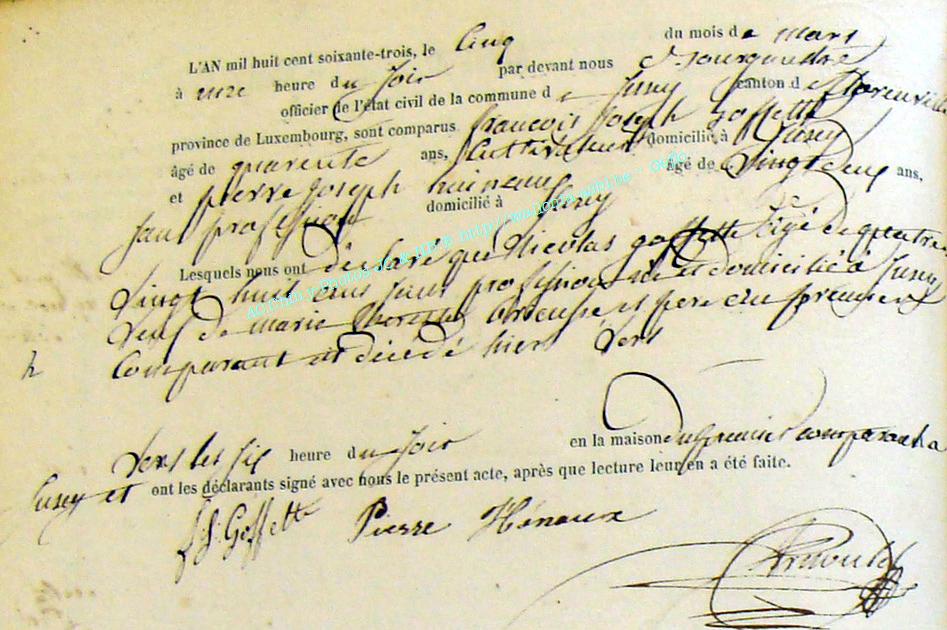 L'AN mil huit cent soixante-trois, le Cinq du mois de mars
à onze heure du soir par devant nous
officier de l'état civil de la commune de Jusey canton de florenville
province de Luxembourg, sont comparus francois Joseph goffette
âgé de quarente ans, Cultivateur domicilié à Jusey
et pierre Joseph hainaux âgé de Vingt deux ans,
sans profession domicilié à Jusey
Lesquels nous ont déclaré que Nicolas goffette agé de quatre
vingt huit ans sans profession né et domicilié à Jusey
veuf de marie et pere au premier
comparant est décédé hier vers
vers les six heure du soir en la maison du premier comparant a
Jusey et ont les déclarants signé avec nous le présent acte, après que lecture leur en a été faite.
f J. Goffette Pierre Hénaux